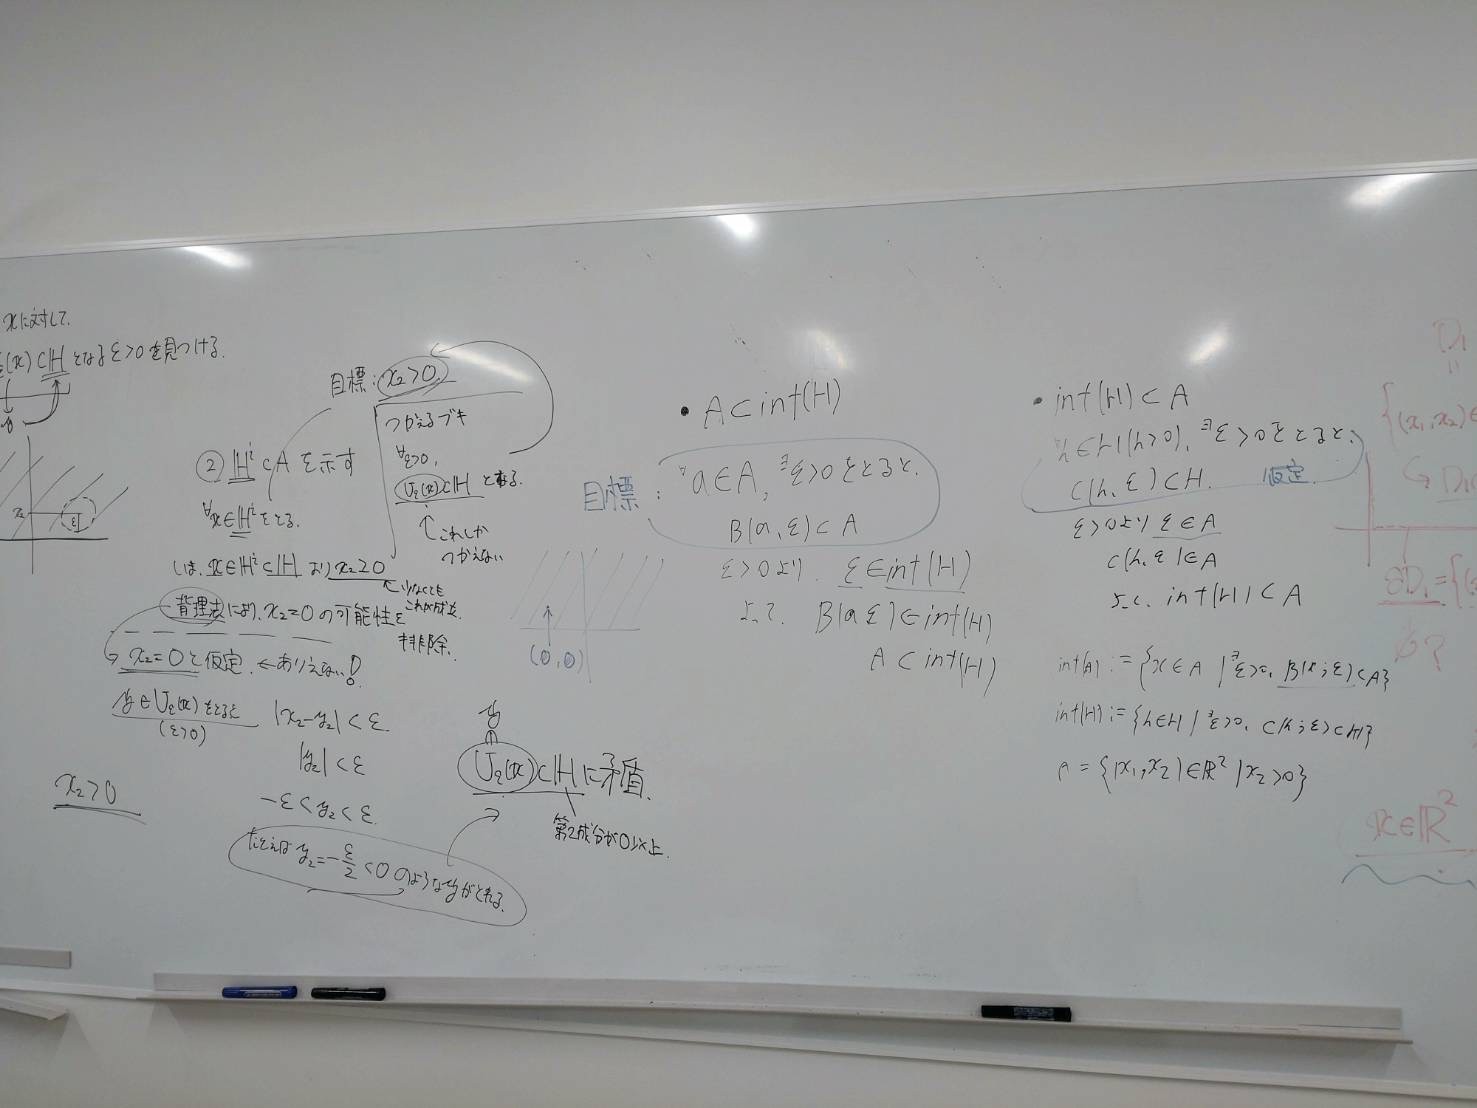 xに対して.
(x)⊂ℍとなるε>0を見つける.
x₂
ε
目標: x₂>0
つかえるブキ
∀ε>0,
U_ε(x)⊂ℍとなる.
↑これしか
つかえない
② ℍⁱ⊂Aを示す
∀x∈ℍⁱをとる.
x∈ℍⁱ⊂ℍ より x₂≥0
←少なくとも
これが成立.
背理法により, x₂=0の可能性を
排除.
x₂=0と仮定. ←ありえない!
y∈U_ε(x)をとると
(ε>0)
|x₂-y₂|<ε.
|y₂|<ε
-ε<y₂<ε.
たとえば y₂=-ε/2<0 のようなyがとれる.
x₂>0
y
U_ε(x)⊂ℍに矛盾.
第2成分が0以上.
• A⊂int(H)
目標:
∀a∈A, ∃ε>0をとると.
B(a,ε)⊂A
ε>0より. ε∈int(H)
よって. B(a,ε)∈int(H)
A⊂int(H)
(0,0)
• int(H)⊂A
∀h∈H(h>0), ∃ε>0をとると.
C(h,ε)⊂H. 仮定.
ε>0より ε∈A
C(h,ε)∈A
よって. int(H)⊂A
int(A):={x∈A|∃ε>0, B(x;ε)⊂A}
int(H):={h∈H|∃ε>0, C(h;ε)⊂H}
A={(x₁,x₂)∈ℝ²|x₂>0}
D₁
{(x₁,x₂)∈
D₁
εD₁={
?
x∈ℝ²